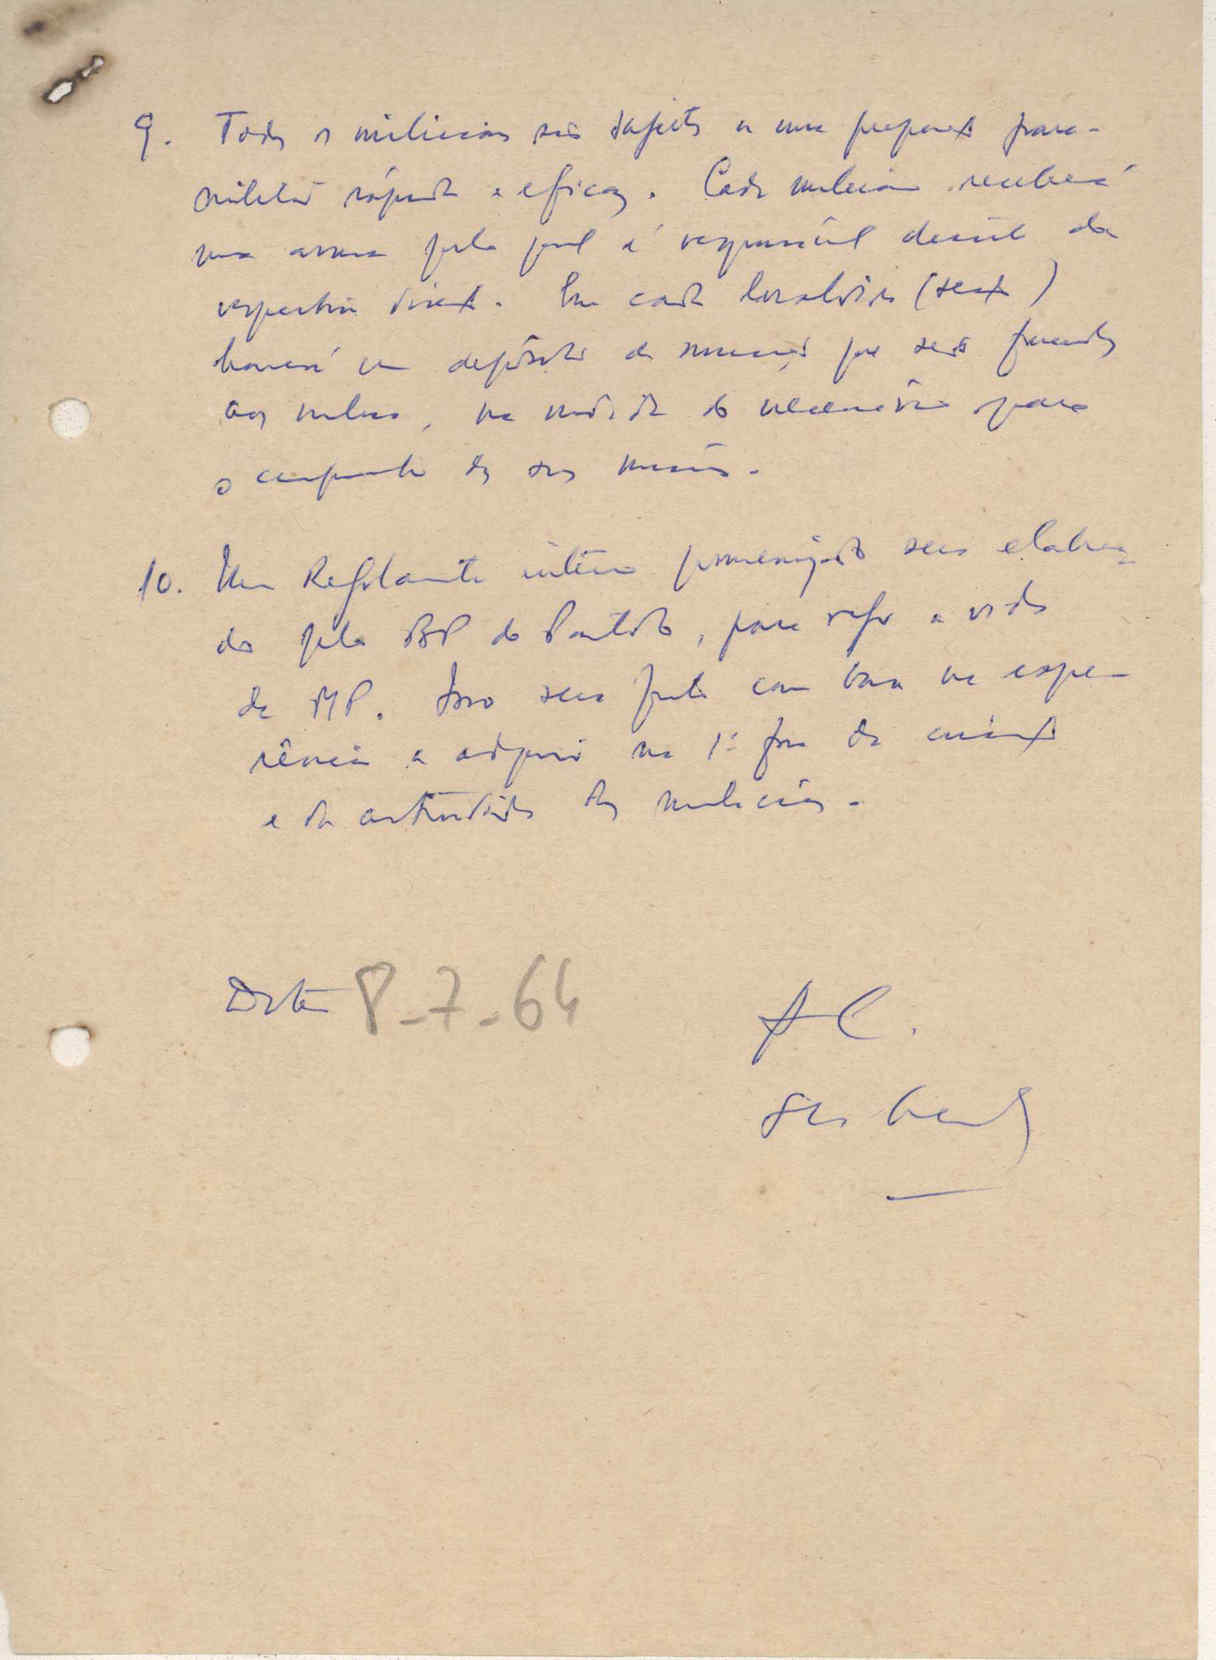 9. Todos os milicianos são sujeitos a uma preparação para-
militar rápida e eficaz. Cada miliciano receberá
uma arma pela qual é responsável diante da
respectiva direcção. Em cada localidade (secção)
haverá um depósito de munições que serão fornecidas
aos milicianos, na medida do necessário para
o cumprimento das suas missões.
10. Um Regulamento interno pormenorizado será elabora-
do pelo BP do Partido, para reger a vida
da MP. Isso será feito com base na expe-
riência a adquirir na 1ª fase da criação
e da actividade das milícias.
Data 8-7-64
A C.
Sec. Geral